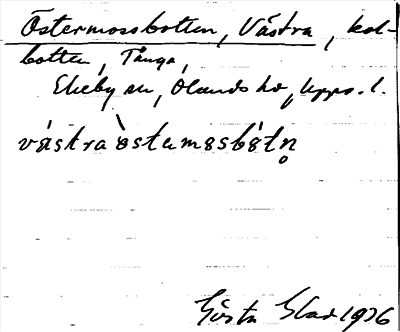 Östermossbotten, Västra, kol-
botten, Tånga,
Ekeby sn, Ölands hd, Upps. l.
västra östermosbòtn̥
Gösta 1926